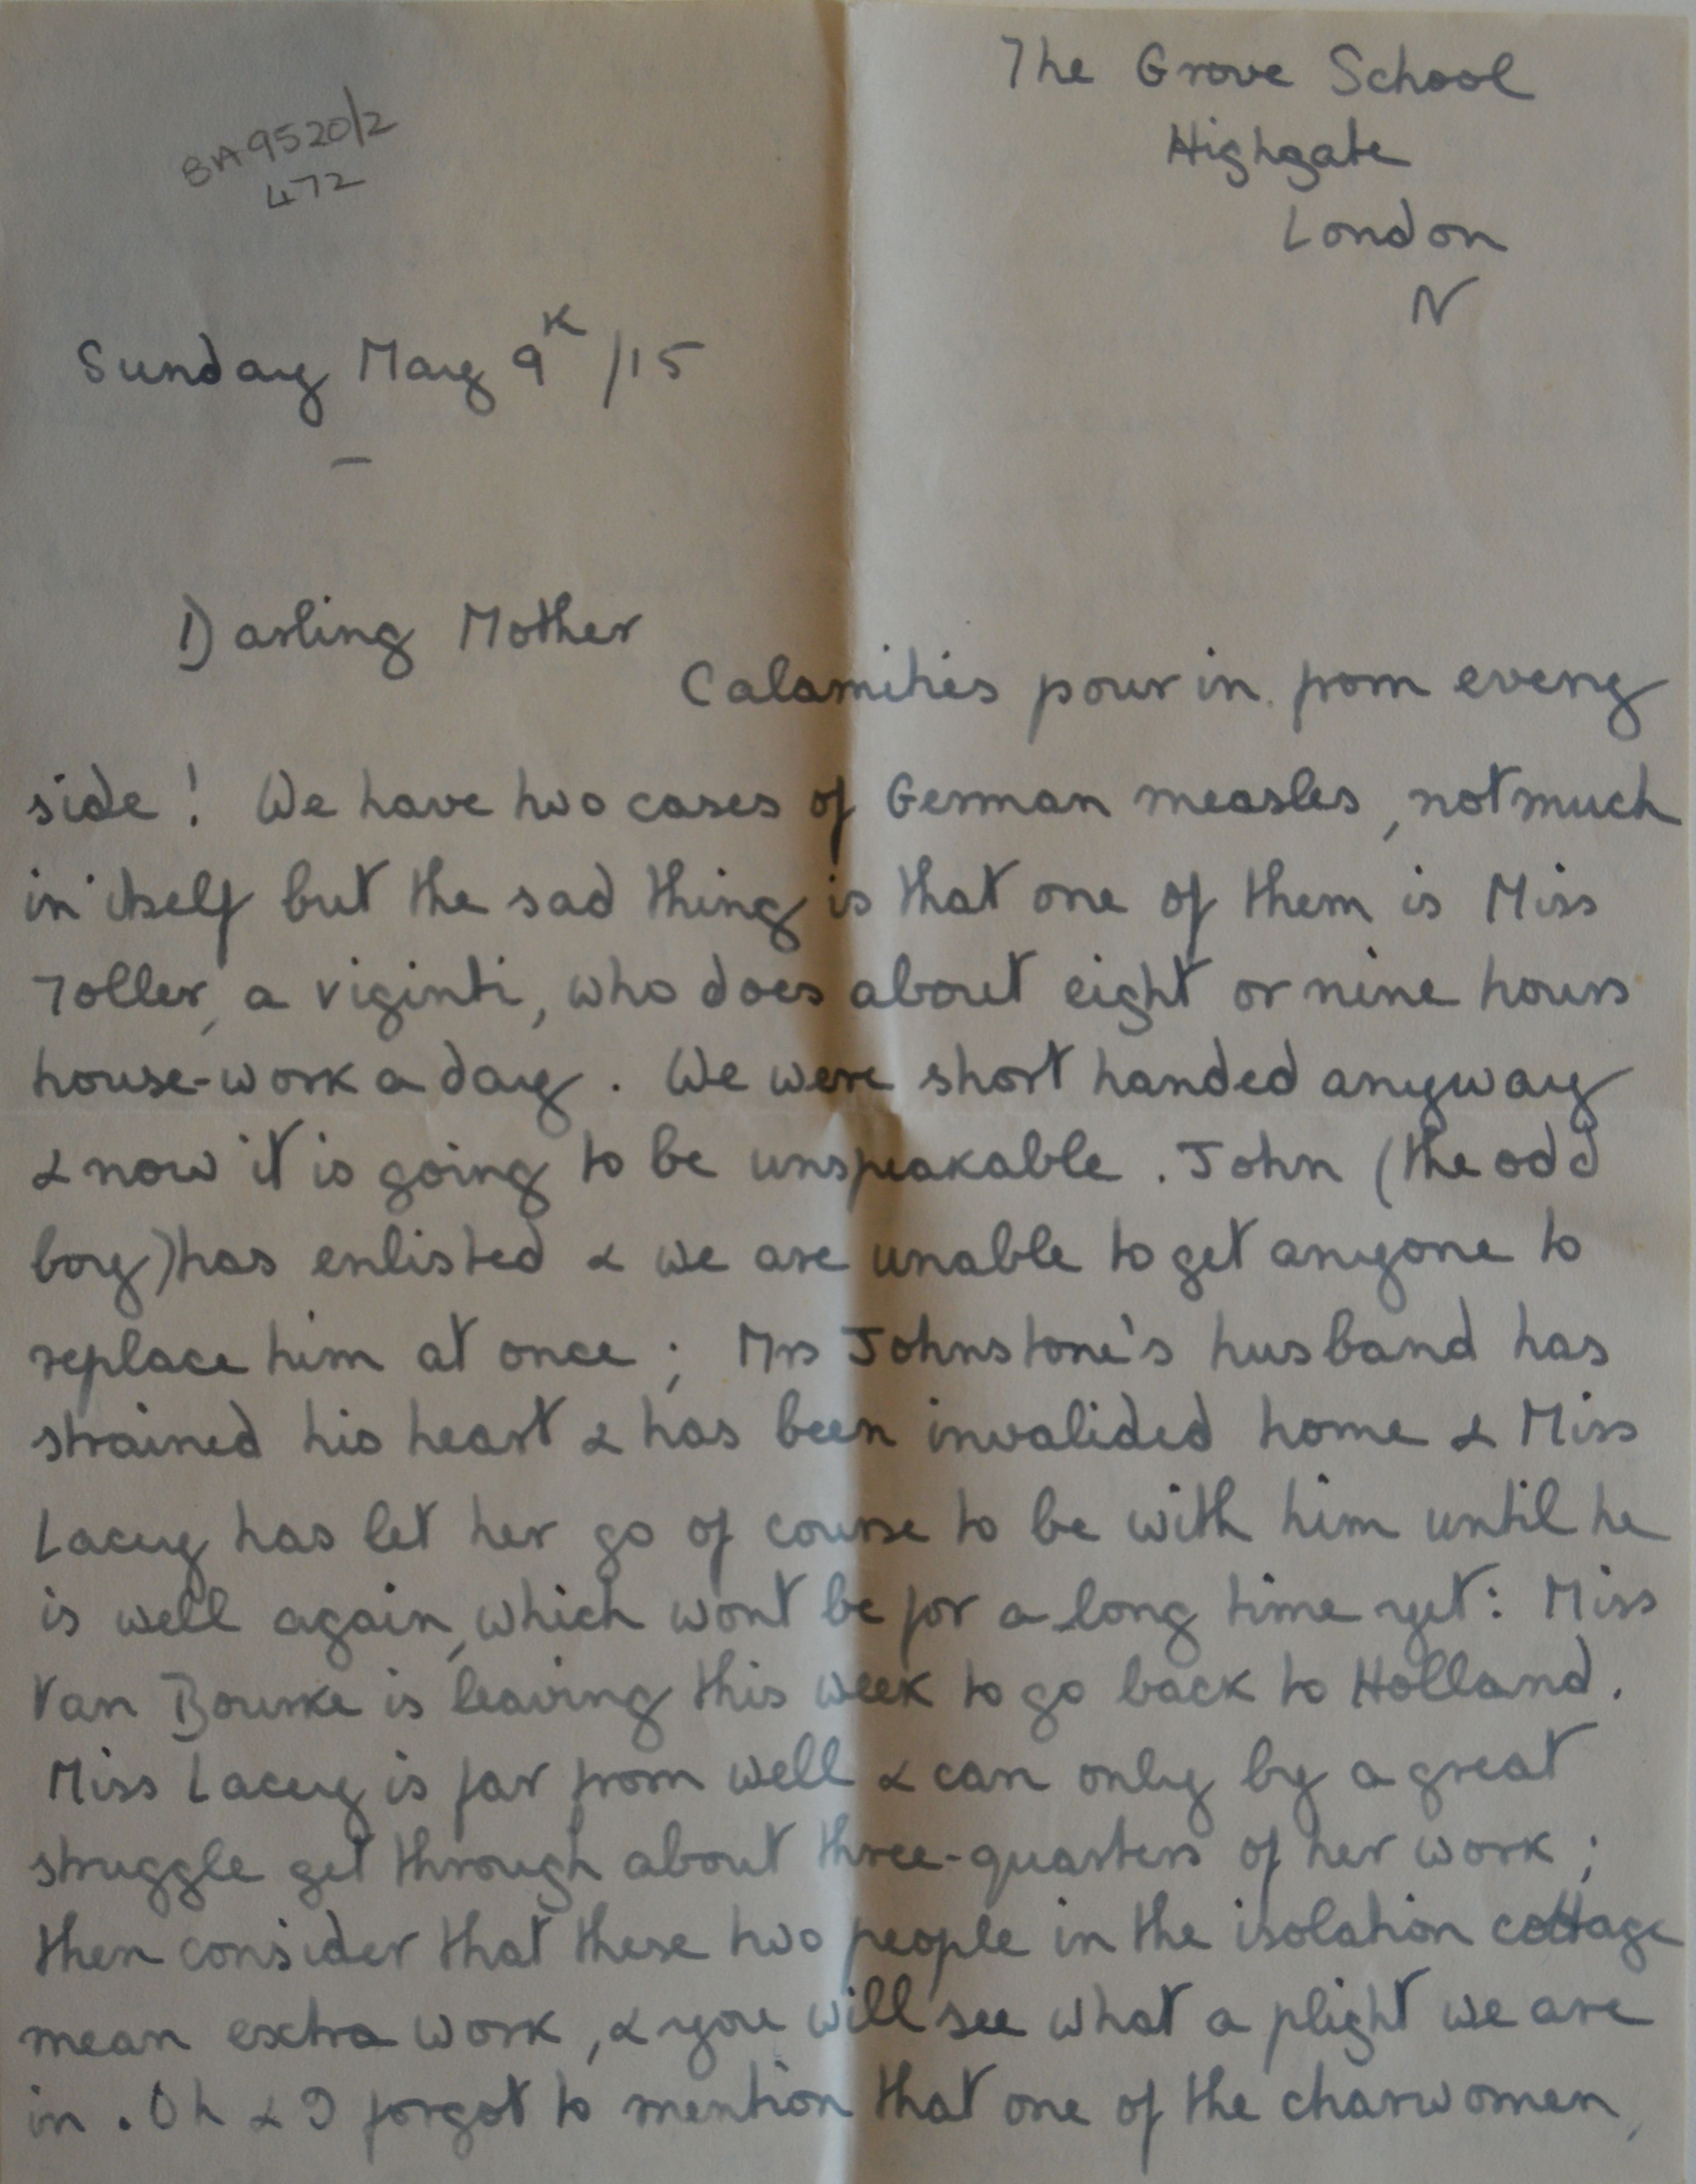 The Grove School
Highgate
London
N
8A9520/2
472
Sunday May 9th /15
Darling Mother
Calamities pour in from every
side! We have two cases of German measles, not much
in itself but the sad thing is that one of them is Miss
Toller, a viginti, who does about eight or nine hours
house-work a day. We were short handed anyway
& now it is going to be unspeakable. John (the odd
boy) has enlisted & we are unable to get anyone to
replace him at once; Mrs Johnstone's husband has
strained his heart & has been invalided home & Miss
Lacey has let her go of course to be with him until he
is well again, which wont be for a long time yet: Miss
Van Bourke is leaving this week to go back to Holland.
Miss Lacey is far from well & can only by a great
struggle get through about three-quarters of her work;
then consider that these two people in the isolation cottage
mean extra work, & you will see what a plight we are
in. Oh & I forgot to mention that one of the charwomen,